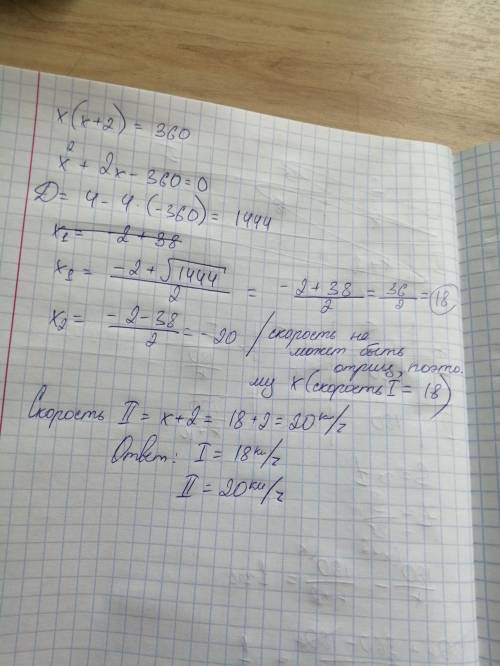 x(x+2) = 360
x² + 2x - 360 = 0
D = 4 - 4 · (-360) = 1444
x₁ = -2 + 38
x₁ = (-2 + √1444)/2 = (-2 + 38)/2 = 36/2 = 18
x₂ = (-2 - 38)/2 = -20 / скорость не
может быть
отриц, поэто.
му x (скорость I = 18)
Скорость II = x+2 = 18+2 = 20 км/ч
Ответ: I = 18 км/ч
II = 20 км/ч